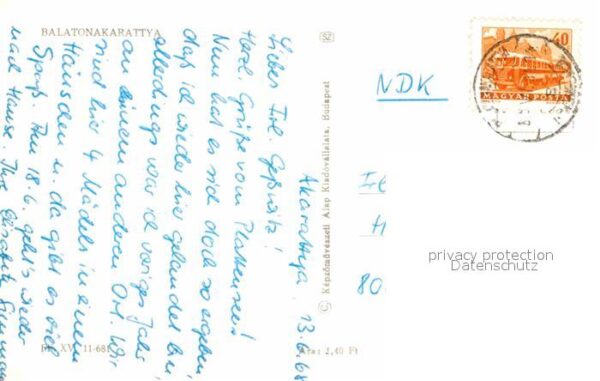 BALATONAKARATTYA
Akarattya, 13.6.68
Liebes Frl.
Herzl. Grüße vom Plattensee!
Nun hat es sich doch so ergeben
daß ich wieder hier gelandet bin,
allerdings war ich voriges Jahr
an einem anderen Ort. Wir
sind hier 4 Mädel in einem
Häuschen u. da gibt es viel
Spaß. Am 18.6. geht's wieder
nach Hause. Ihre Elisabeth
XV. 11-681
Ára: 2,40 Ft
© Képzőművészeti Alap Kiadóvállalata, Budapest
SZ
NDK
40
MAGYAR POSTA
H
80
privacy protection
Datenschutz